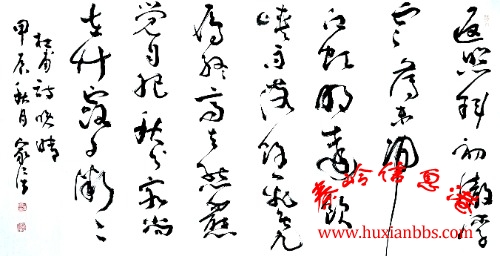 返照斜初徹浮
雲薄未歸
江虹明遠飲
峽雨落餘飛鳧
雁終高去熊羆
覺自肥秋分客尚
在竹露夕微々
杜甫詩晚晴
甲辰秋月
秦岭信息港
www.huxianbbs.com